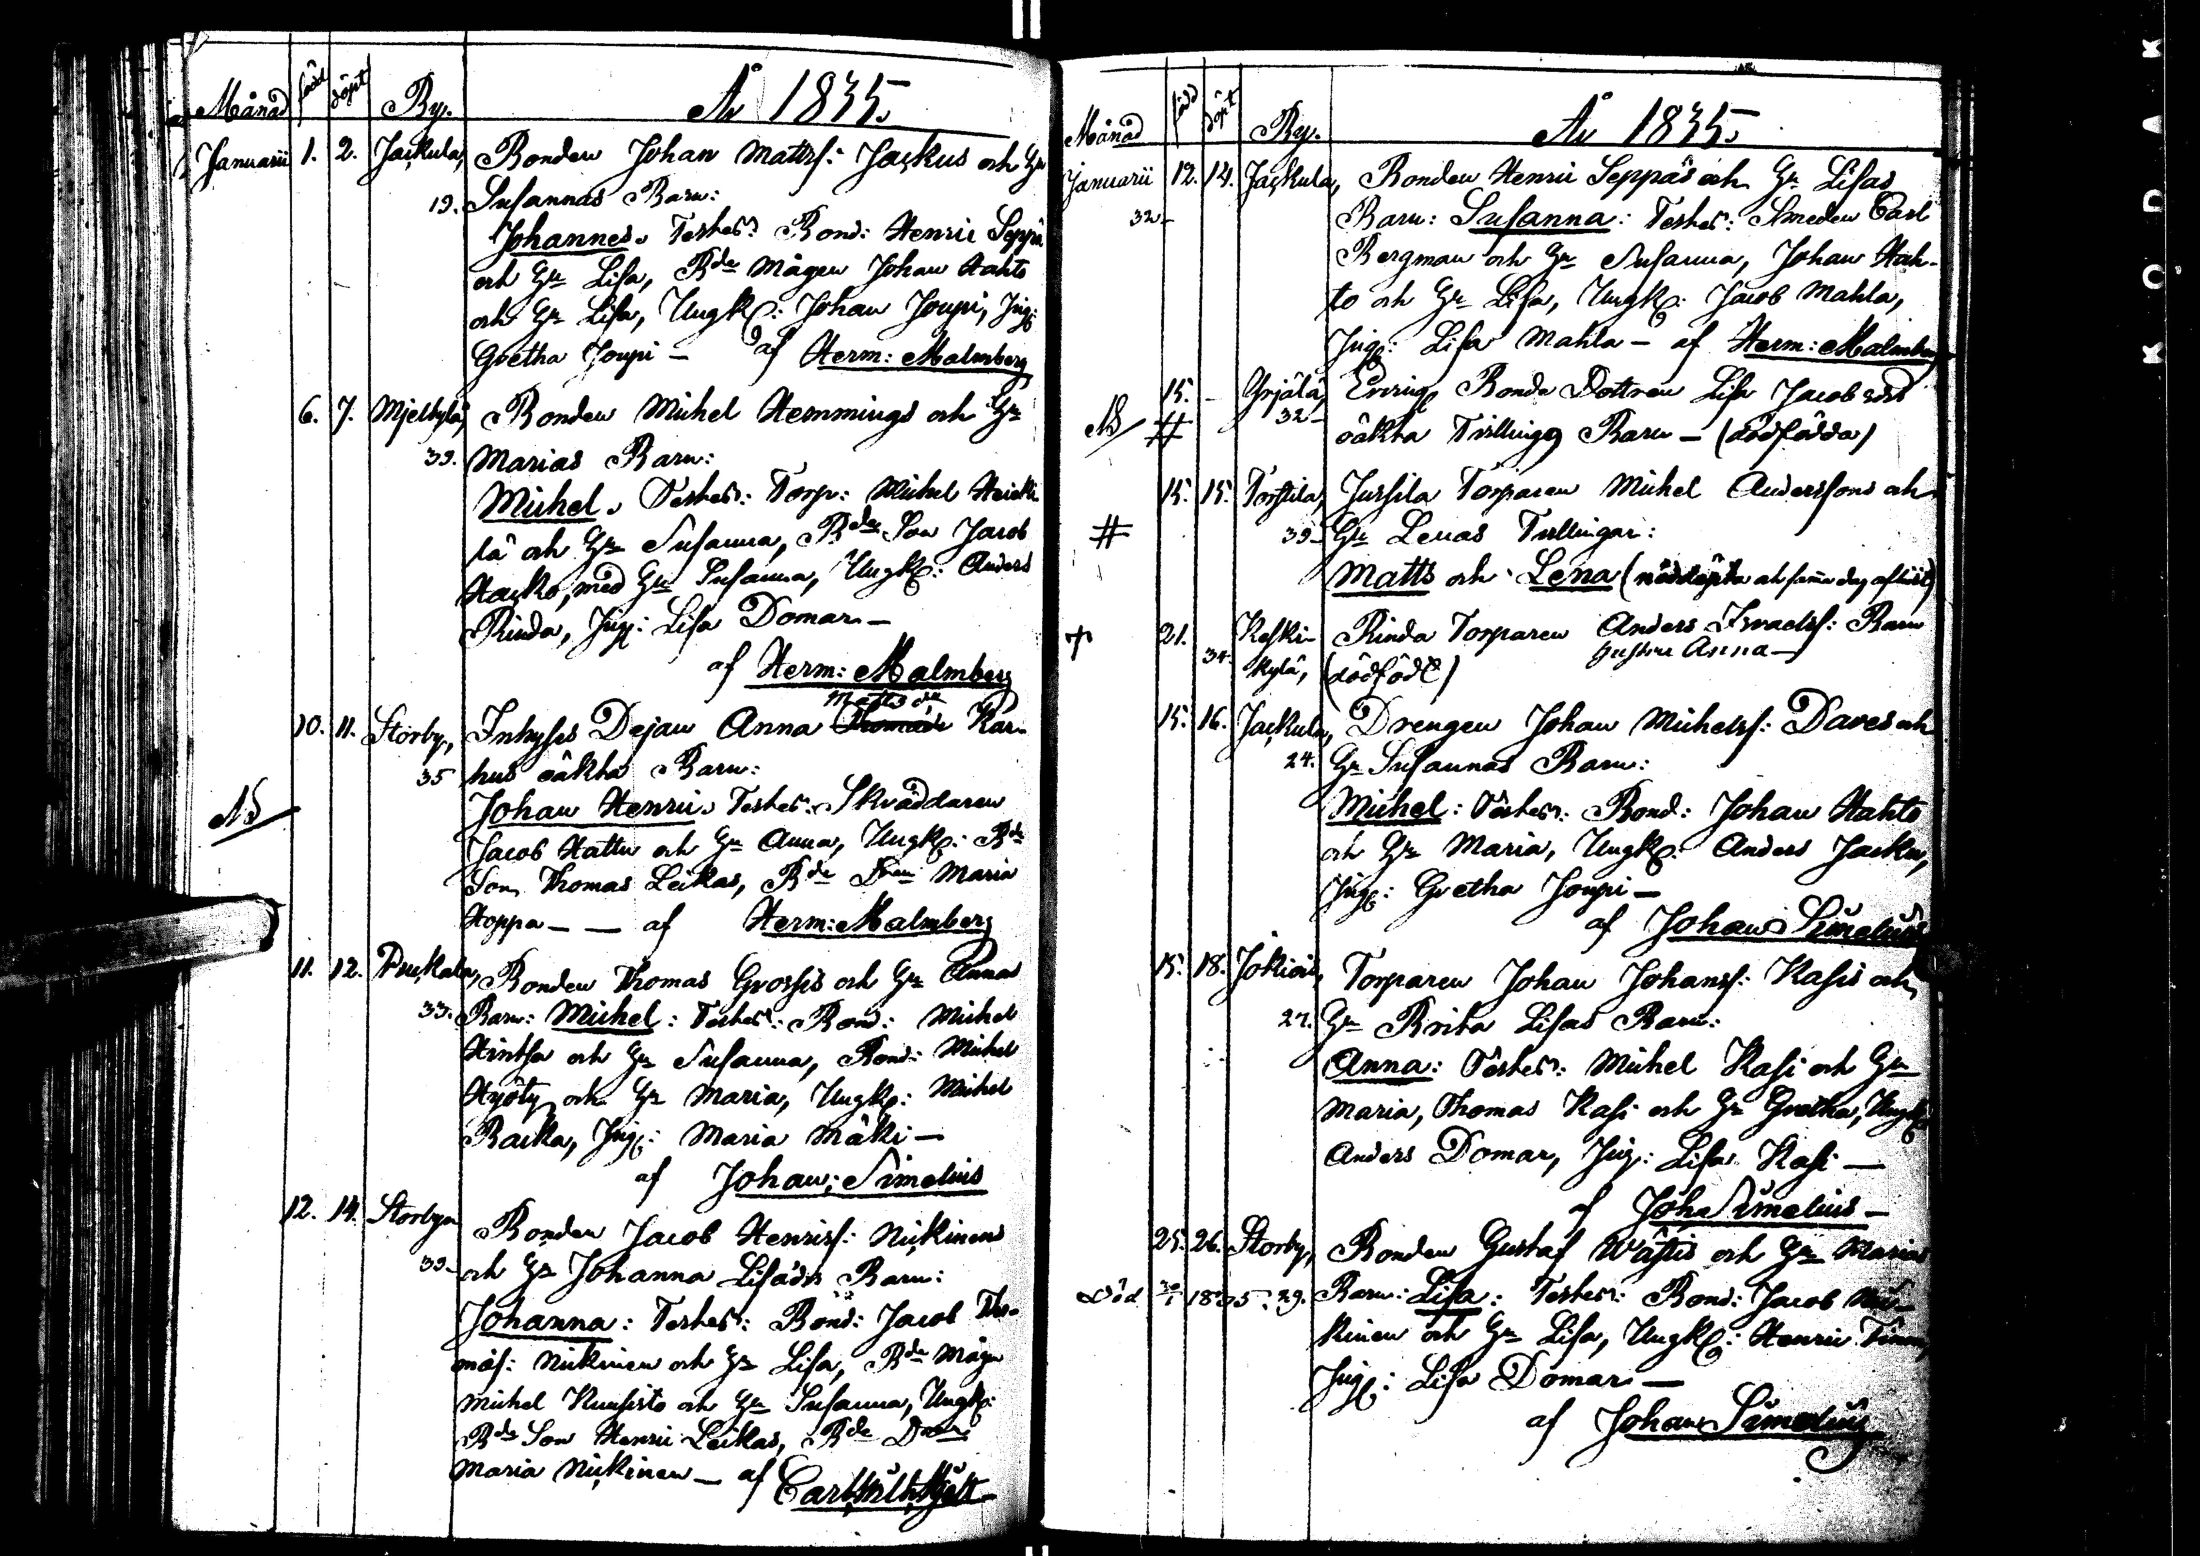 Månad född döpt By. År 1835.
Januarii 1. 2. Jackula, Bonden Johan Mattss: Jackus och Hu
19. Susannas Barn:
Johannes. Testes: Bond: Henric Seppä
och Hu Lisa, Bde Mågen Johan Hahto
och Hu Lisa, Ungk: Johan Joupi, Pig:
Gretha Joupi – af Herm: Malmberg
6. 7. Mjelbylä, Bonden Michel Hemmings och Hu
39. Marias Barn:
Michel. Testes: Torp: Michel Heicki
lä och Hu Susanna, Bde Son Jacob
Hacko, med Hu Susanna, Ungk: Anders
Rinda, Pig: Lisa Domar –
af Herm: Malmberg
Matts dr
10. 11. Storby, Inhyses Dejan Anna Thomäde Kar-
35 hus oäkta Barn:
NB Johan Henric. Testes: Skräddaren
Jacob Hattu och Hu Anna, Ungk: Bde
Son Thomas Leikas, Bde Dom Maria
Hoppa – – af Herm: Malmberg
11. 12. Pruckala, Bonden Thomas Grossis och Hu Annas
33. Barn: Michel: Testes: Bond: Michel
Hintsa och Hu Susanna, Bond: Michel
Hyöty och Hu Maria, Ungk: Michel
Racka, Pig: Maria Mäki –
af Johan: Simelius
12. 14. Storbyn Bonden Jacob Henrics: Nickinens
39– och Hu Johanna Lisädrs Barn:
Johanna: Testes: Bond: Jacob Tho-
mäs: Nickinen och Hu Lisa, Bde Mågn
Michel Kunsisto och Hu Susanna, Ungk:
Bde Son Henric Leikas, Bde Dom
Maria Nickinen – af Carl
Månad född döpt By. År 1835.
Januarii 12. 14. Jackula, Bonden Henric Seppäs och Hu Lisas
32– Barn: Susanna: Testes: Smeden Carl
Bergman och Hu Susanna, Johan Hah-
to och Hu Lisa, Ungk: Jacob Mahla,
Pig: Lisa Mahla – af Herm: Malmberg
15. – Yrjälä, Bonde Dottren Lisa Jacobsdrs
NB # 32– oäkta Tvillings Barn – (dödfödda)
15. 15. Torstila, Jussila Torparen Michel Anderssons och
# 39– Hu Lenas Tvillingar:
Matts och Lena (nöddöpta och samma dag aflidit)
+ 21. Keski- Rinda Torparen Anders Israelss: Barn
34. kylä, (dödfödt) hustru Anna –
15. 16. Jackula, Drengen Johan Michelss: Daves och
24. Hu Susannas Barn:
Michel: Testes: Bond: Johan Hahto
och Hu Maria, Ungk: Anders Jacku,
Pig: Gretha Joupi –
af Johan Simelius
15. 18. Jokiois, Torparen Johan Johanss: Kasis och
27. Hu Brita Lisas Barn:
Anna: Testes: Michel Kasi och Hu
Maria, Thomas Kasi och Hu Gretha, Ungk
Anders Domar, Pig: Lisa Kasi –
af Joh Simelius –
25. 26. Storby, Bonden Gustaf Wästis och Hu Maria
Död 30/1 1835. 29. Barn: Lisa: Testes: Bond: Jacob Nic-
kinen och Hu Lisa, Ungk: Henric Timm,
Pig: Lisa Domar –
af Johan Simelius
KODAK